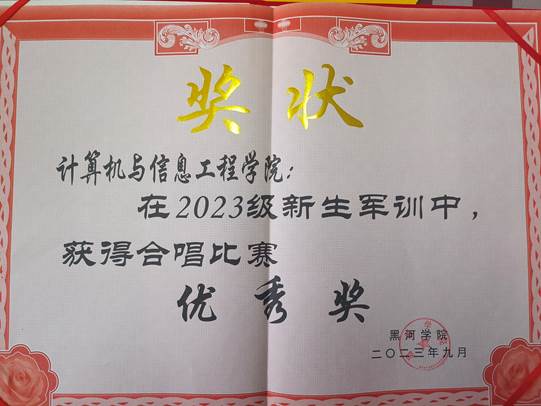 奖状
计算机与信息工程学院：
在2023级新生军训中，
获得合唱比赛
优秀奖
黑河学院
二〇二三年九月